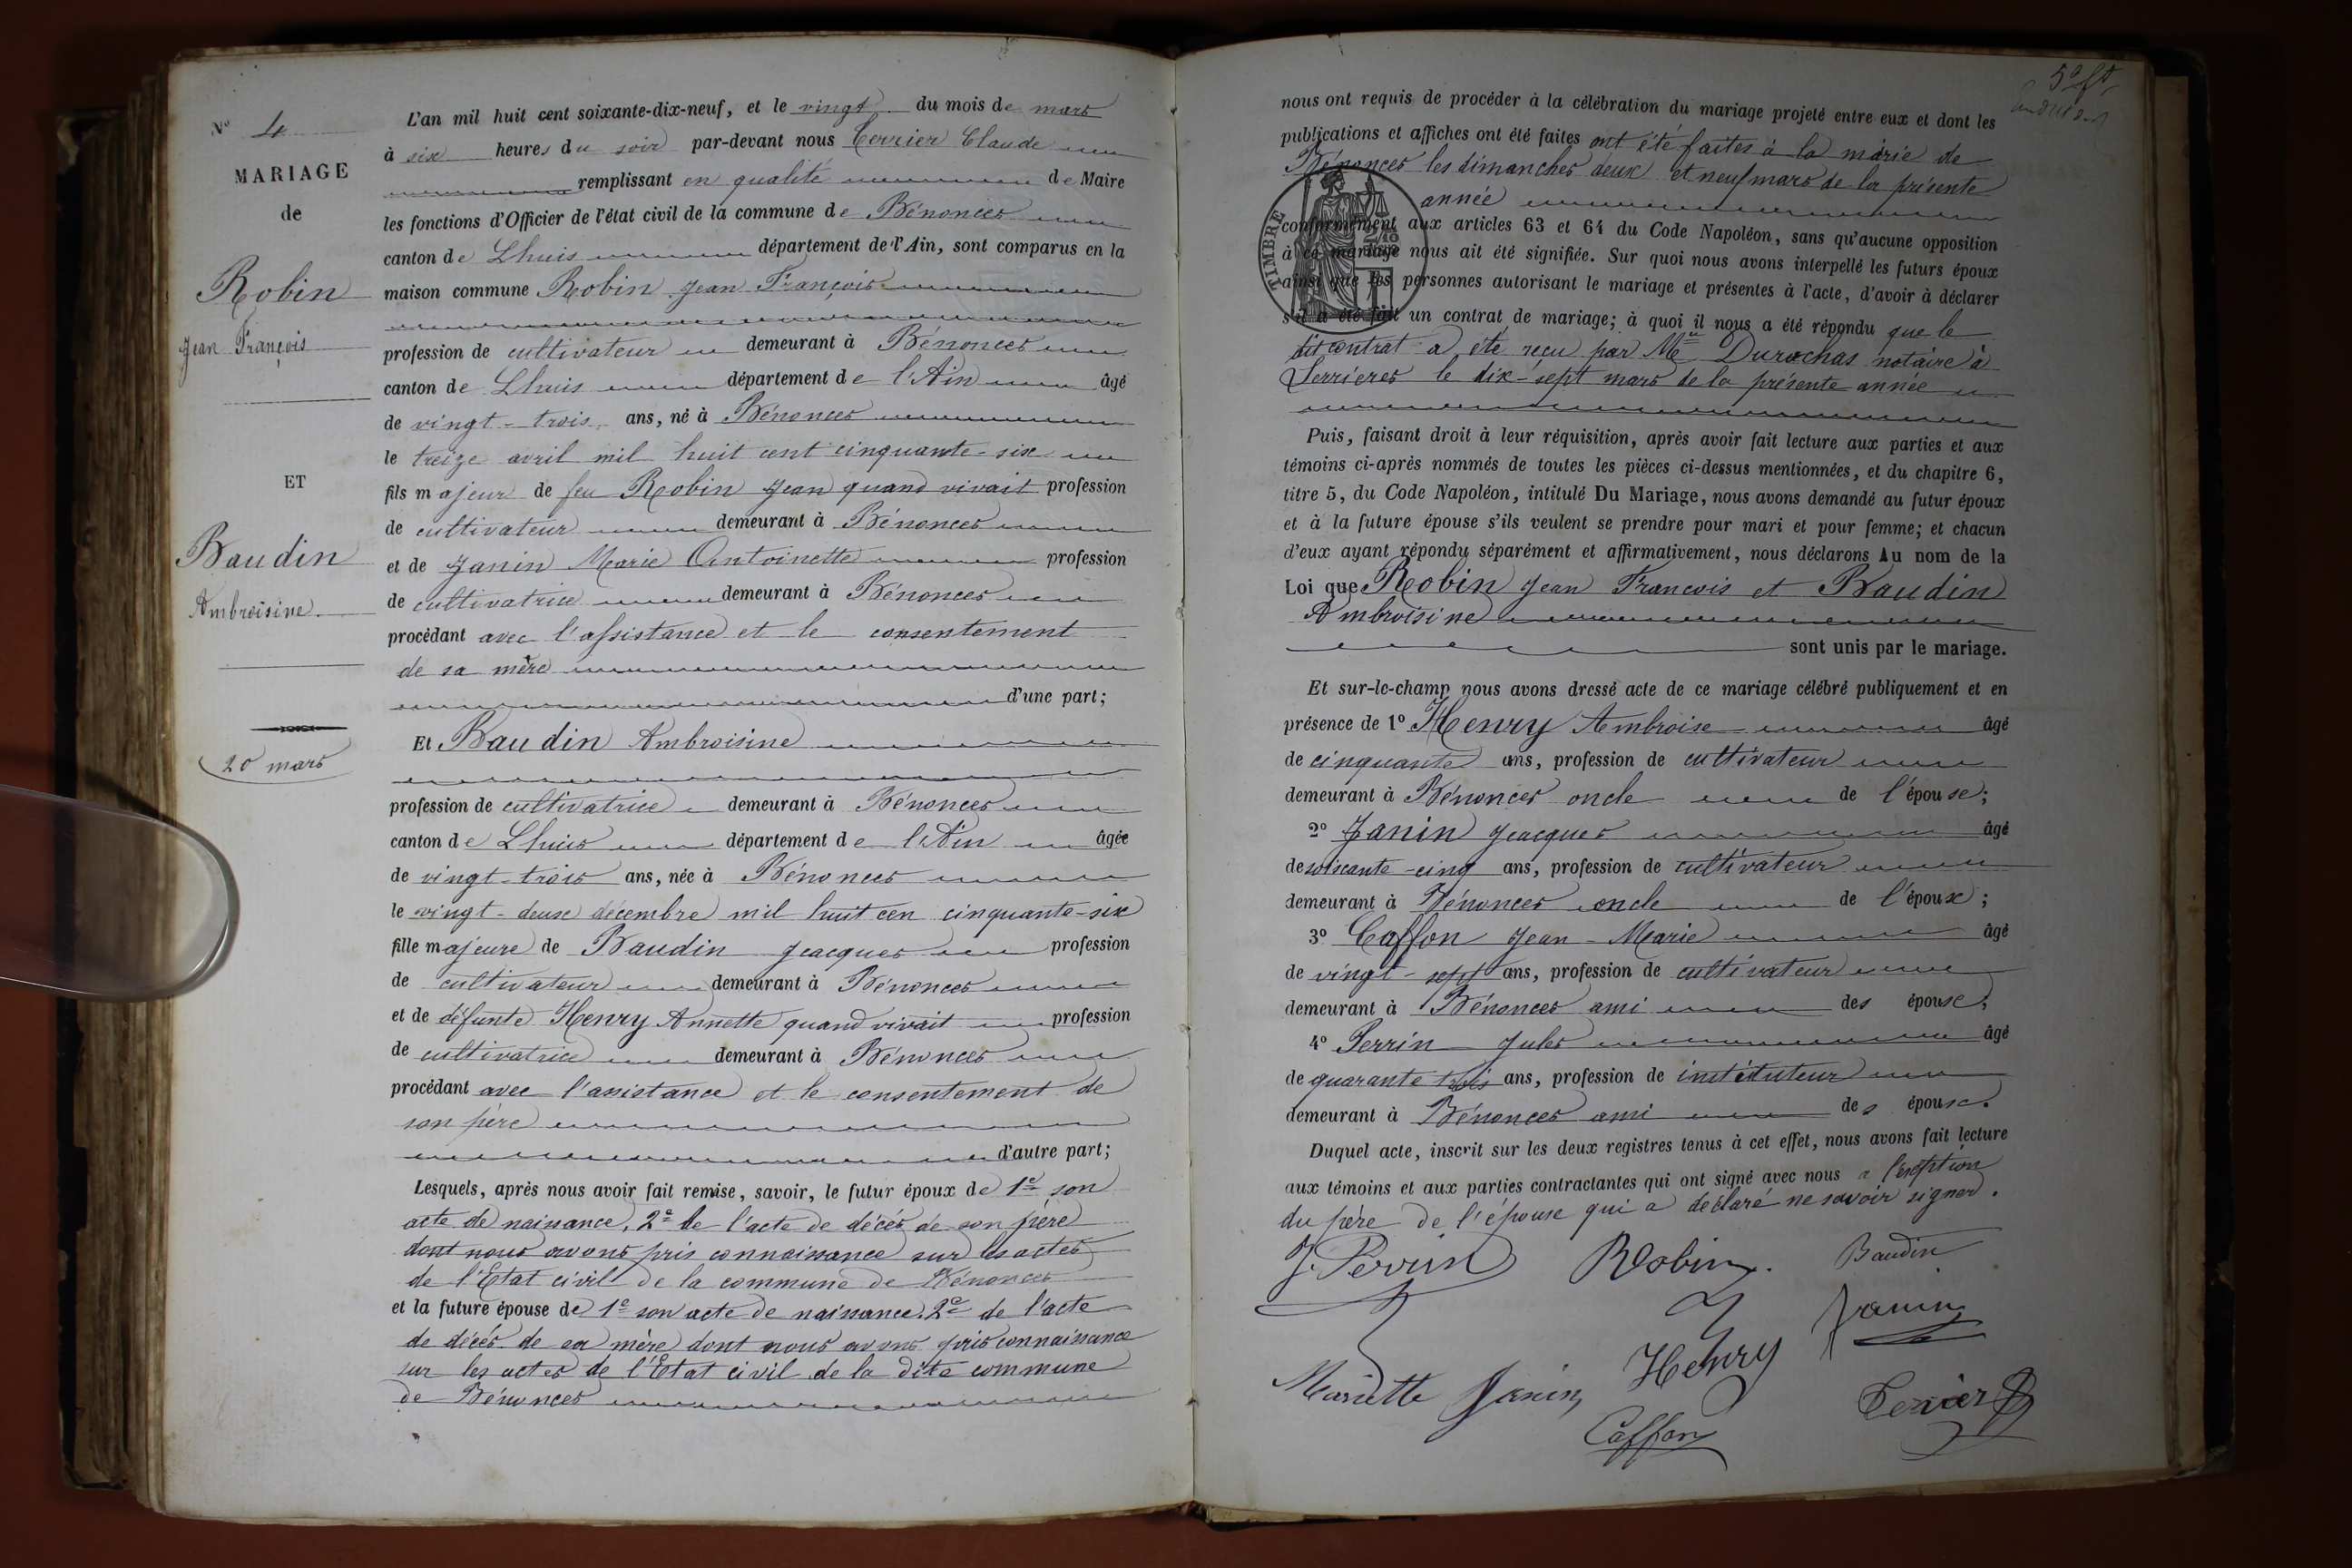 N° 4
MARIAGE
de
Robin
Jean François
ET
Baudin
Ambroisine
20 mars
L'an mil huit cent soixante-dix-neuf, et le vingt du mois de mars
à six heures du soir par-devant nous Terrier Claude
remplissant en qualité de Maire
les fonctions d'Officier de l'état civil de la commune de Bénonces
canton de Lhuis département de l'Ain, sont comparus en la
maison commune Robin Jean François
profession de cultivateur demeurant à Bénonces
canton de Lhuis département de l'Ain âgé
de vingt-trois ans, né à Bénonces
le treize avril mil huit cent cinquante-six
fils majeur de feu Robin Jean quand vivait profession
de cultivateur demeurant à Bénonces
et de Janin Marie Antoinette profession
de cultivatrice demeurant à Bénonces
procédant avec l'assistance et le consentement
de sa mère
d'une part;
Et Baudin Ambroisine
profession de cultivatrice demeurant à Bénonces
canton de Lhuis département de l'Ain âgée
de vingt-trois ans, née à Bénonces
le vingt-deux décembre mil huit cen cinquante-six
fille majeure de Baudin Jeacques profession
de cultivateur demeurant à Bénonces
et de défunte Henry Annette quand vivait profession
de cultivatrice demeurant à Bénonces
procédant avec l'assistance et le consentement de
son père
d'autre part;
Lesquels, après nous avoir fait remise, savoir, le futur époux de 1e son
acte de naissance, 2e de l'acte de décès de son père
dont nous avons pris connaissance sur les actes
de l'Etat civil de la commune de Bénonces
et la future épouse de 1e son acte de naissance. 2e de l'acte
de décès de sa mère dont nous avons pris connaissance
sur les actes de l'Etat civil de la dite commune
de Bénonces
nous ont requis de procéder à la célébration du mariage projeté entre eux et dont les
publications et affiches ont été faites ont été faites à la mairie de
Bénonces les dimanches deux et neuf mars de la présente
année
TIMBRE
conformément aux articles 63 et 64 du Code Napoléon, sans qu'aucune opposition
à ce mariage nous ait été signifiée. Sur quoi nous avons interpellé les futurs époux
ainsi que les personnes autorisant le mariage et présentes à l'acte, d'avoir à déclarer
s'il a été fait un contrat de mariage; à quoi il nous a été répondu que le
dit contrat a été reçu par Me Durochas notaire à
Serrieres le dix-sept mars de la présente année
Puis, faisant droit à leur réquisition, après avoir fait lecture aux parties et aux
témoins ci-après nommés de toutes les pièces ci-dessus mentionnées, et du chapitre 6,
titre 5, du Code Napoléon, intitulé Du Mariage, nous avons demandé au futur époux
et à la future épouse s'ils veulent se prendre pour mari et pour femme; et chacun
d'eux ayant répondu séparément et affirmativement, nous déclarons Au nom de la
Loi que Robin Jean Francois et Baudin
Ambroisine
sont unis par le mariage.
Et sur-le-champ nous avons dressé acte de ce mariage célébré publiquement et en
présence de 1° Henry Ambroise âgé
de cinquante ans, profession de cultivateur
demeurant à Bénonces oncle de l'épouse;
2° Janin Jeacques âgé
de soixante-cinq ans, profession de cultivateur
demeurant à Bénonces oncle de l'époux;
3° Caffon Jean-Marie âgé
de vingt-sept ans, profession de cultivateur
demeurant à Bénonces ami des épouse;
4° Perrin Jules âgé
de quarante trois ans, profession de instituteur
demeurant à Bénonces ami des épouse.
Duquel acte, inscrit sur les deux registres tenus à cet effet, nous avons fait lecture
aux témoins et aux parties contractantes qui ont signé avec nous a l'exeption
du père de l'épouse qui a déclaré ne savoir signer.
J. Perrin Robin Baudin
Janin
Henry
Mariette Janin
Terrier
Caffon